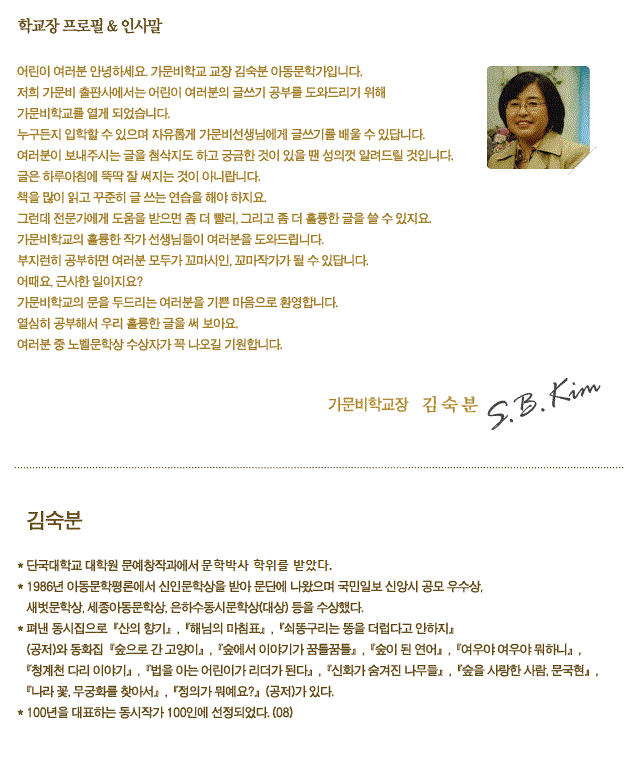 학교장 프로필 & 인사말
어린이 여러분 안녕하세요. 가문비학교 교장 김숙분 아동문학가입니다.
저희 가문비 출판사에서는 어린이 여러분의 글쓰기 공부를 도와드리기 위해
가문비학교를 열게 되었습니다.
누구든지 입학할 수 있으며 자유롭게 가문비선생님에게 글쓰기를 배울 수 있답니다.
여러분이 보내주시는 글을 첨삭지도 하고 궁금한 것이 있을 땐 성의껏 알려드릴 것입니다.
글은 하루아침에 뚝딱 잘 써지는 것이 아니랍니다.
책을 많이 읽고 꾸준히 글 쓰는 연습을 해야 하지요.
그런데 전문가에게 도움을 받으면 좀 더 빨리, 그리고 좀 더 훌륭한 글을 쓸 수 있지요.
가문비학교의 훌륭한 작가 선생님들이 여러분을 도와드립니다.
부지런히 공부하면 여러분 모두가 꼬마시인, 꼬마작가가 될 수 있답니다.
어때요, 근사한 일이지요?
가문비학교의 문을 두드리는 여러분을 기쁜 마음으로 환영합니다.
열심히 공부해서 우리 훌륭한 글을 써 보아요.
여러분 중 노벨문학상 수상자가 꼭 나오길 기원합니다.
가문비학교장 김숙분 S.B.Kim
김숙분
* 단국대학교 대학원 문예창작과에서 문학박사 학위를 받았다.
* 1986년 아동문학평론에서 신인문학상을 받아 문단에 나왔으며 국민일보 신앙시 공모 우수상,
새벗문학상, 세종아동문학상, 은하수동시문학상(대상) 등을 수상했다.
* 펴낸 동시집으로 『산의 향기』, 『해님의 마침표』, 『쇠똥구리는 똥을 더럽다고 안하지』
(공저)와 동화집 『숲으로 간 고양이』, 『숲에서 이야기가 꿈틀꿈틀』, 『숲이 된 연어』, 『여우야 여우야 뭐하니』,
『청계천 다리 이야기』, 『법을 아는 어린이가 리더가 된다』, 『신화가 숨겨진 나무들』, 『숲을 사랑한 사람, 문국현』,
『나라 꽃, 무궁화를 찾아서』, 『정의가 뭐예요?』(공저)가 있다.
* 100년을 대표하는 동시작가 100인에 선정되었다. (08)